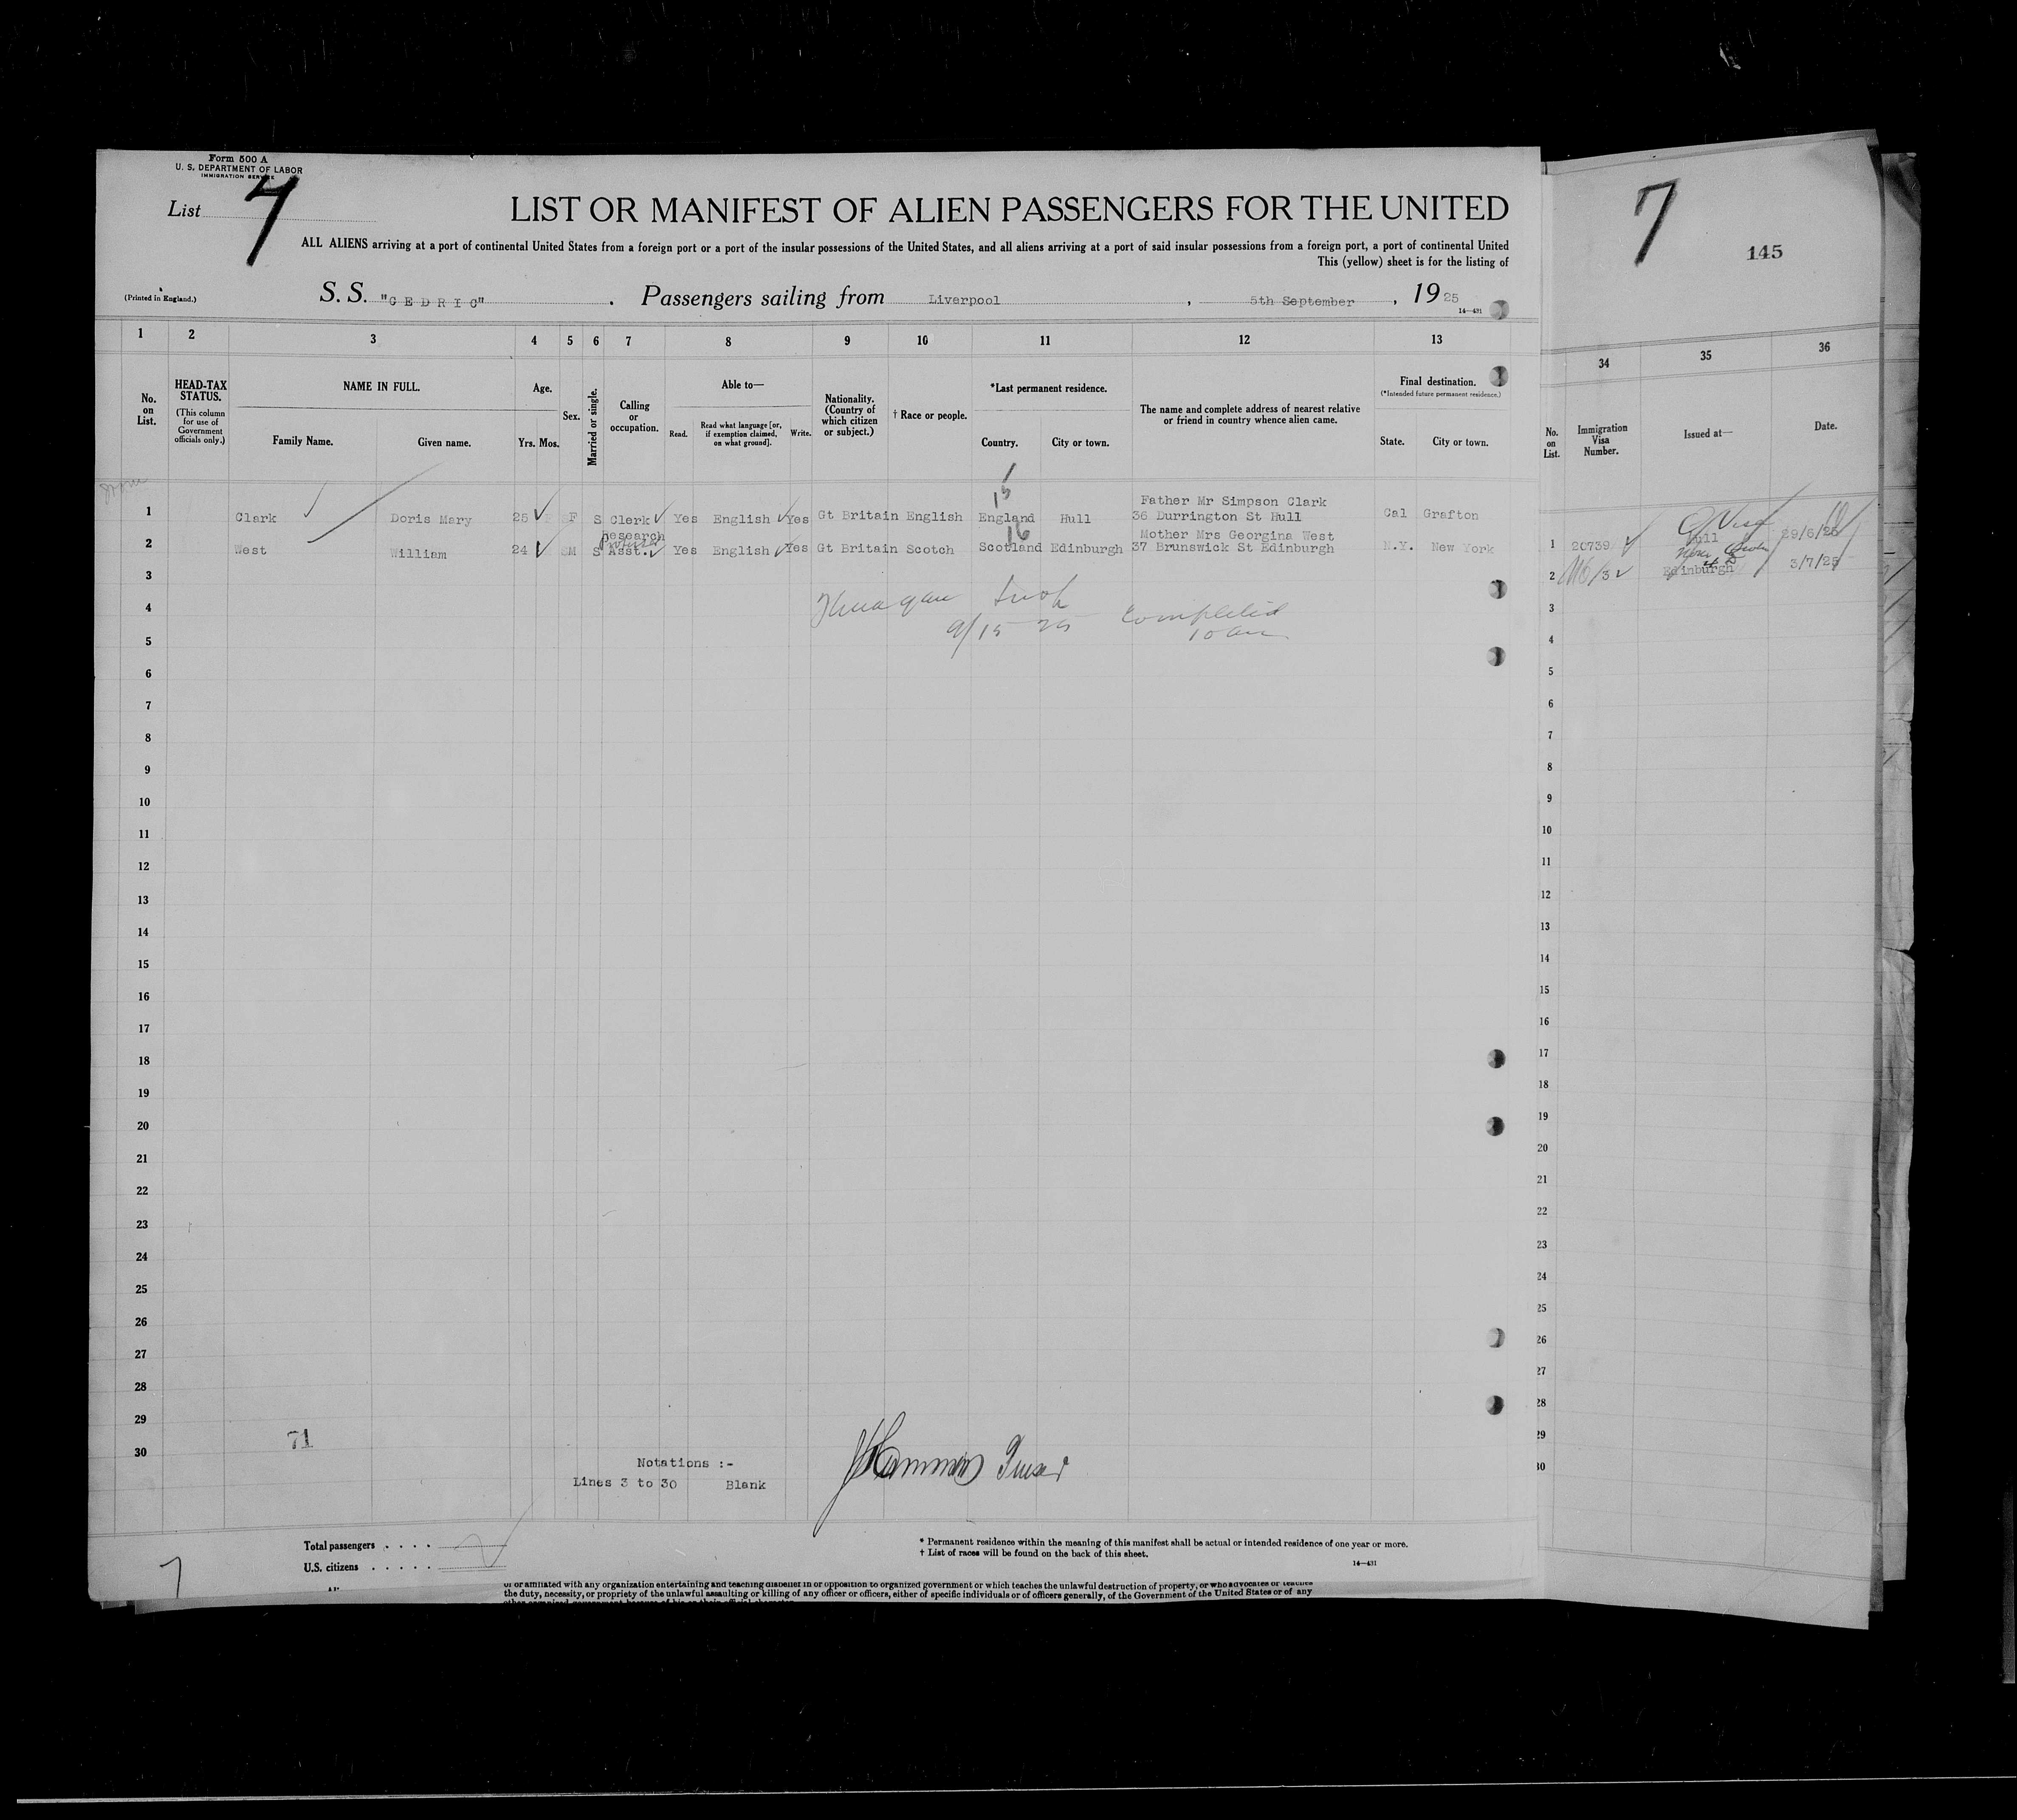 Form 500 A
U. S. DEPARTMENT OF LABOR
IMMIGRATION SERVICE
List 7
LIST OR MANIFEST OF ALIEN PASSENGERS FOR THE UNITED
ALL ALIENS arriving at a port of continental United States from a foreign port or a port of the insular possessions of the United States, and all aliens arriving at a port of said insular possessions from a foreign port, a port of continental United
This (yellow) sheet is for the listing of
(Printed in England.)
S. S. "CEDRIC" . Passengers sailing from Liverpool , 5th September , 1925
14—431
7
145
1 2 3 4 5 6 7 8 9 10 11 12 13
34 35 36
No. on List.
HEAD-TAX STATUS.
(This column for use of Government officials only.)
NAME IN FULL.
Family Name. Given name.
Age.
Yrs. Mos.
Sex.
Married or single.
Calling or occupation.
Able to—
Read. Read what language [or, if exemption claimed, on what ground]. Write.
Nationality. (Country of which citizen or subject.)
† Race or people.
*Last permanent residence.
Country. City or town.
The name and complete address of nearest relative or friend in country whence alien came.
Final destination.
(*Intended future permanent residence.)
State. City or town.
No. on List.
Immigration Visa Number.
Issued at—
Date.
15
Father Mr Simpson Clark
1 Clark Doris Mary 25 F S Clerk Yes English Yes Gt Britain English England Hull 36 Durrington St Hull Cal Grafton
16
Research
Mother Mrs Georgina West
2 West William 24 M S Asst. Yes English Yes Gt Britain Scotch Scotland Edinburgh 37 Brunswick St Edinburgh N.Y. New York
1 20739 Hull 29/6/25
2 Edinburgh 3/7/25
9/15 25 Completed
10 am
3
4
5
6
7
8
9
10
11
12
13
14
15
16
17
18
19
20
21
22
23
24
25
26
27
28
29
30
3
4
5
6
7
8
9
10
11
12
13
14
15
16
17
18
19
20
21
22
23
24
25
26
27
28
29
30
71
Notations :-
Lines 3 to 30 Blank
Total passengers . . . .
U.S. citizens . . . . .
7
* Permanent residence within the meaning of this manifest shall be actual or intended residence of one year or more.
† List of races will be found on the back of this sheet.
14—431
of or affiliated with any organization entertaining and teaching disbelief in or opposition to organized government or which teaches the unlawful destruction of property, or who advocates or teaches
the duty, necessity, or propriety of the unlawful assaulting or killing of any officer or officers, either of specific individuals or of officers generally, of the Government of the United States or of any